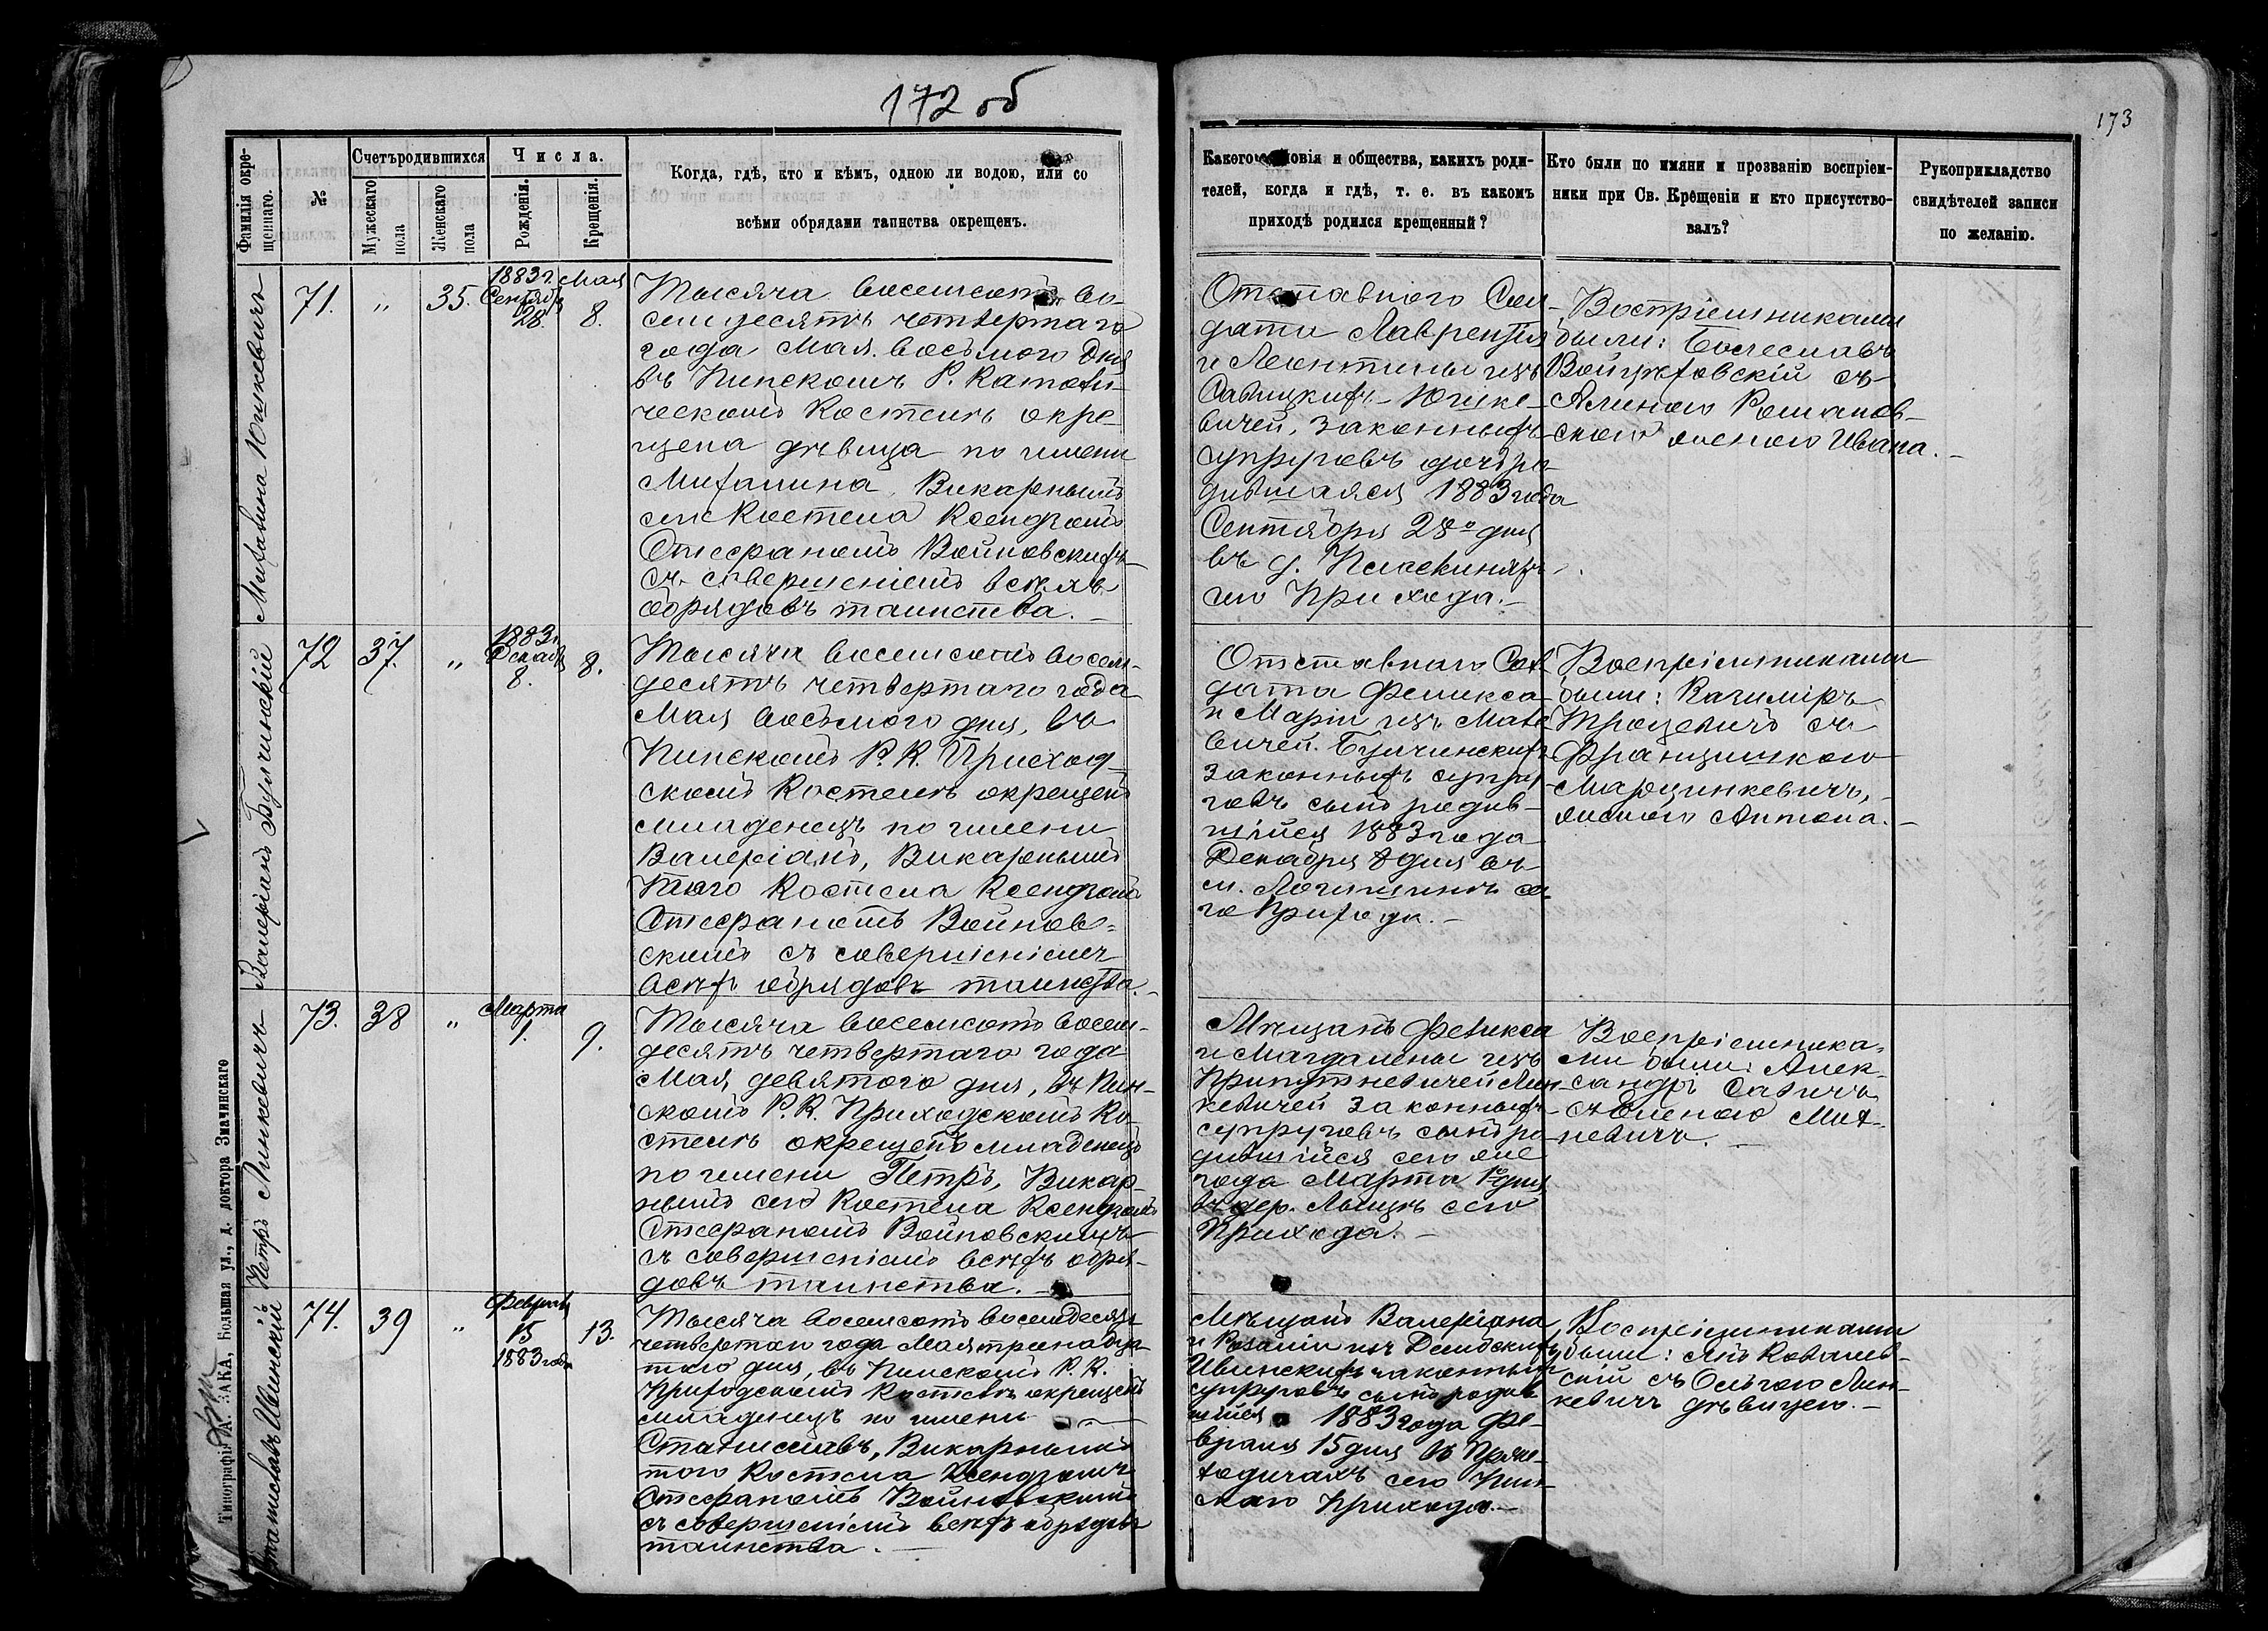 172 об
173
Фамилія окре-
щеннаго.
№
Счетъ родившихся
Мужескаго
пола
Женскаго
пола
Числа.
Рожденія.
Крещенія.
Когда, гдѣ, кто и кѣмъ, одною ли водою, или со
всѣми обрядами таинства окрещенъ.
Какого словія и общества, какихъ роди-
телей, когда и гдѣ, т. е. въ какомъ
приходѣ родился крещенный?
Кто были по имяни и прозванію воспріем-
ники при Св. Крещеніи и кто присутство-
валъ?
Рукоприкладство
свидѣтелей записи
по желанію.
Михалина Юшкевичъ
71.
"
35.
1883 г.
Сентяб
28.
Мая
8.
Тысяча восемсотъ во-
семдесятъ четвертаго
года Мая восьмого дня
въ Пинскомъ Р. Католи-
ческомъ Костелѣ окре-
щена дѣвица по имени
Михалина, Викарнымъ
сего Костела Ксендзомъ
Отсфраномъ Войновскимъ
съ совершеніемъ всѣхъ
обрядовъ таинства.
Отставного Сол-
дата Лаврентія
и Леонтины изъ
Савицкихъ Юшке-
вичей, законныхъ
супруговъ дочь ро-
дившаяся 1883 года
Сентября 28о дня
въ д.
сего Прихода.
Воспріемниками
были: Болеславъ
съ
Алиною Романов-
скою женою Ивана.
Валеріанъ Булчинскій
72
37.
"
1883 г.
Декаб
8.
8.
Тысяча восемсотъ восем-
десятъ четвертаго года
Мая восьмого дня, въ
Пинскомъ Р. К. Приход-
скомъ Костелѣ окрещенъ
младенецъ по имени
Валеріанъ, Викарнымъ
того Костела Ксендзомъ
Отсфраномъ Войнов-
скимъ съ совершеніемъ
всѣхъ обрядовъ таинства.
Отставного Сол-
дата Феликса
и Маріи изъ Мате
вичей Булчинскихъ
законныхъ супру-
говъ сынъ родив-
шійся 1883 года
Декабря 8 дня въ
м. Логишинѣ се-
го Прихода.
Воспріемниками
были: Казимиръ
Троцевичъ съ
Францишкою
Марцинкевичъ,
женою Антона.
Петръ Линкевичъ
73.
38
"
Марта
1.
9.
Тысяча восемсотъ восем-
десятъ четвертаго года
Мая, девятого дня, въ Пин-
скомъ Р. К. Приходскомъ Ко-
стелѣ окрещенъ младенецъ
по имени Петръ, Викар-
нымъ сего Костела Ксендзомъ
Отсфраномъ Войновскимъ
съ совершеніемъ всѣхъ обря-
довъ таинства.
Мѣщанъ Феликса
и Магдалены изъ
Припутневичей Лин-
кевичей законныхъ
супруговъ сынъ ро-
дившійся сего же
года Марта 1о дня,
въ дер. сего
Прихода.
Воспріемника-
ми были: Алек-
сандръ Савичъ
съ Еленою Мит-
кевичъ.
Станиславъ Ивинскій
74.
39
"
Февраля
15
1883 года
13.
Тысяча восемсотъ восемдесятъ
четвертаго года Мая тринадца-
таго дня, въ Пинскомъ Р. К.
Приходскомъ Костелѣ окрещенъ
младенецъ по имени
Станиславъ, Викарнымъ
того Костела Ксендзомъ
Отсфраномъ Войновскимъ
съ совершеніемъ всѣхъ обрядовъ
таинства.
Мѣщанъ Валеріана
и Розаліи изъ
Ивинскихъ законныхъ
супруговъ сынъ родив
шійся 1883 года Фе-
враля 15 дня въ
сего Пин-
скаго Прихода.
Воспріемниками
были: Янъ Ковалев-
скій съ Ольгою Лин-
кевичъ дѣвицею.
Типографія ЗАКА, Большая ул., д. доктора Значинскаго